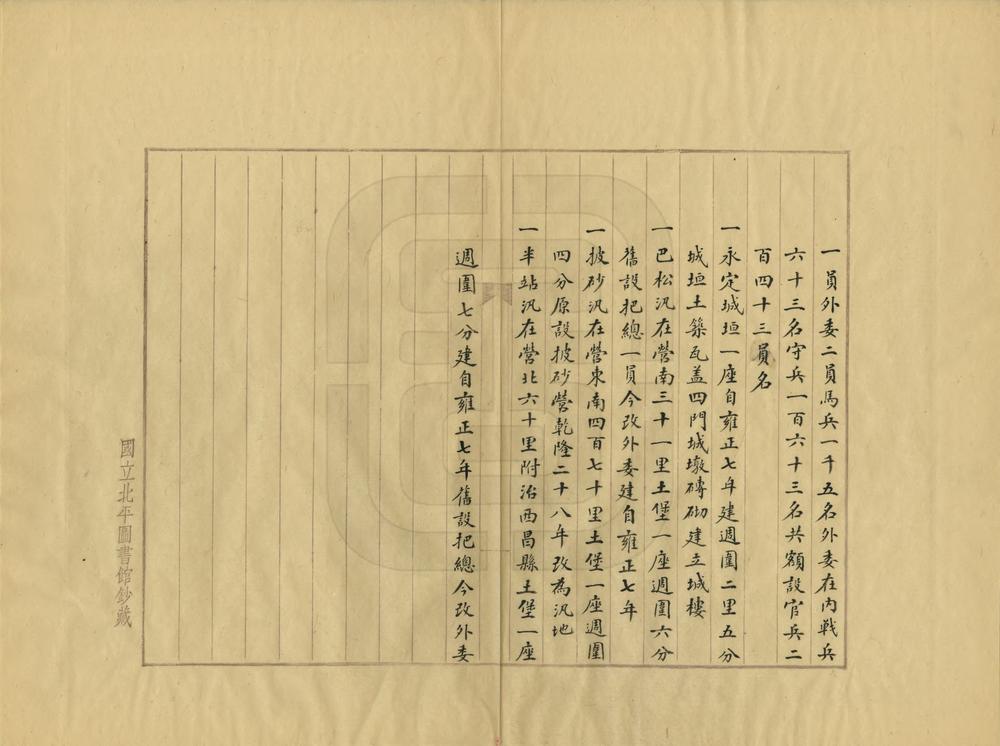 一員外委二員馬兵一千五名外委在内戰兵
六十三名守兵一百六十三名共額設官兵二
百四十三員名
一永定城垣一座自雍正七年建週圍二里五分
城垣土築瓦盖四門城墩磚砌建立城樓
一巴松汛在營南三十一里土堡一座週圍六分
舊設把總一員今改外委建自雍正七年
一披砂汛在營東南四百七十里土堡一座週圍
四分原設披砂營乾隆二十八年改為汛地
一半站汛在營北六十里附治西昌縣土堡一座
週圍七分建自雍正七年舊設把總今改外委
國立北平圖書館鈔藏